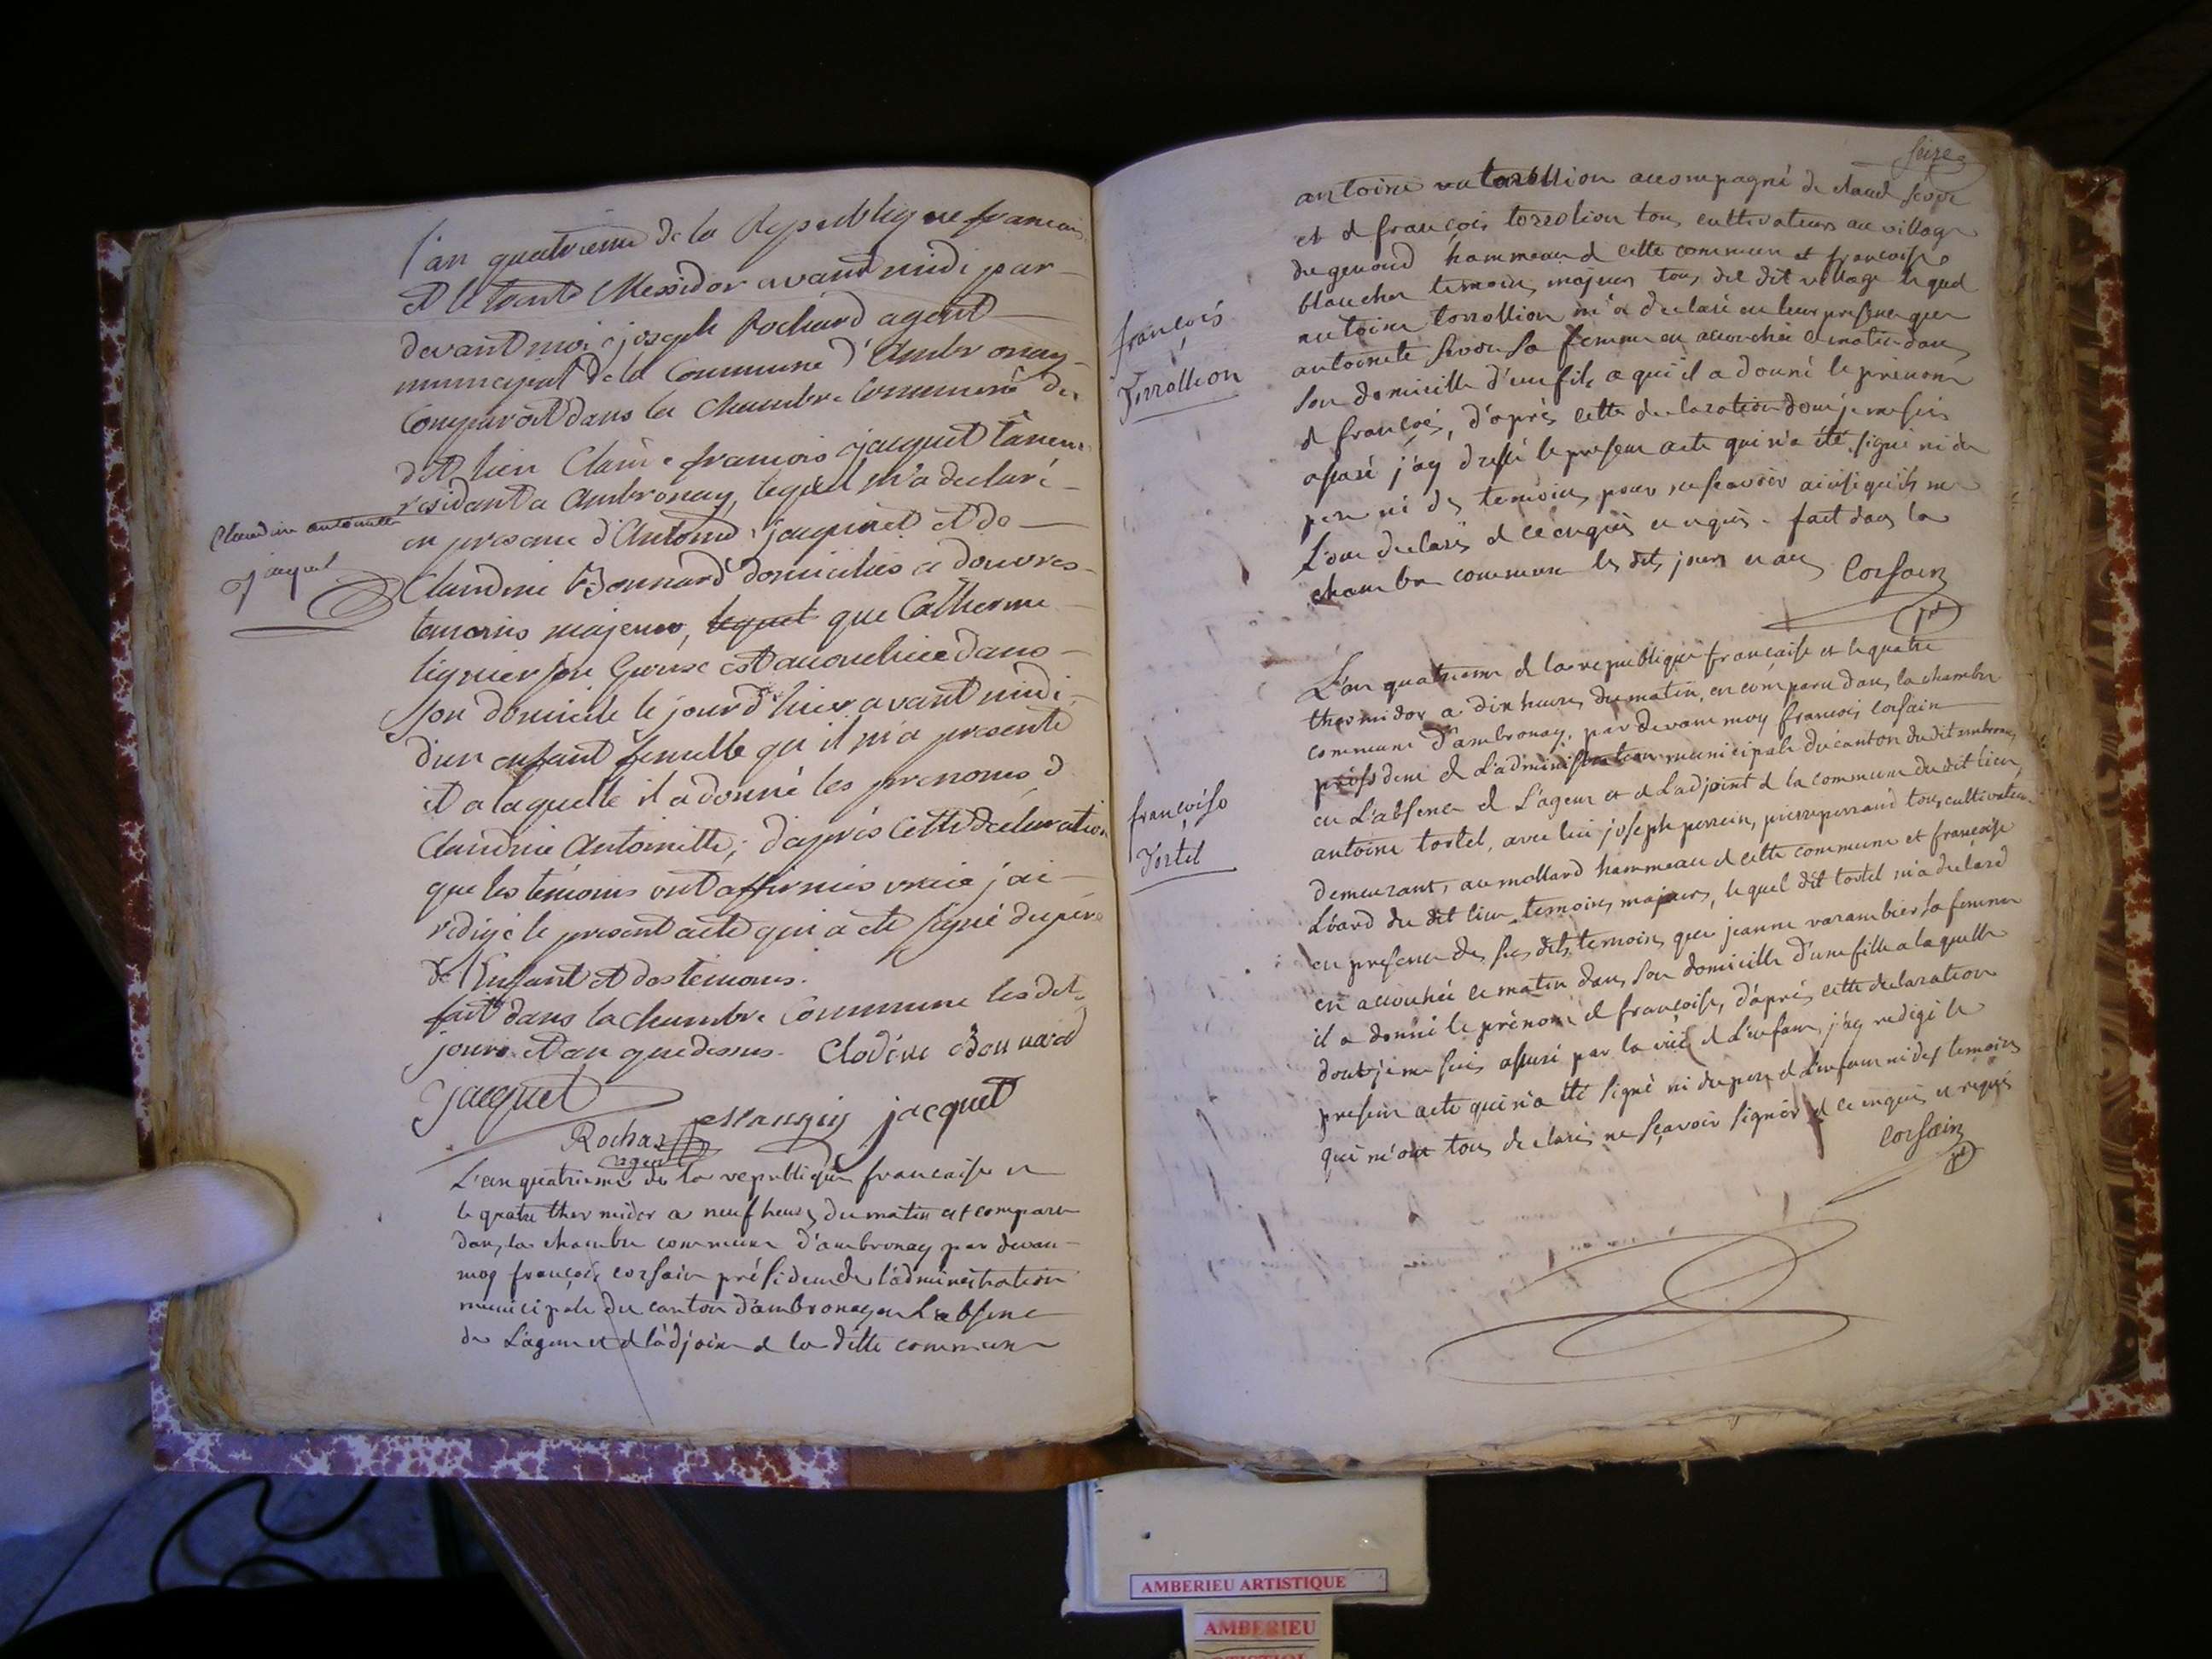 l'an quatrieme de la Republique francais
et le trente Messidor avant midi par
devant moi joseph Rochard agent
municipal de la Commune d'Ambronay
Comparoit dans la Chambre Commune du
dit lieu Claude francois jacquet
residant a Ambronay, lequel m'a declaré
en presence d'Antoine jacquet et de
Claudine Bonnard domiciliés a douvres
temoins majeurs, lequel que Catherine
son Epouse est accouchée dans
son domicile le jour d'hier avant midi
d'un enfant femelle qu'il m'a presenté
et a laquelle il a donné les prenoms d
Claudine Antoinette; d'après cette declaration
que les temoins ont affirmés vraie j'ai
redigé le present acte qui a eté signé du pere
de l'Enfant et des temoins.
fait dans la chambre Commune les dit
jours et an que dessus. Clodine Bonnard
jacquet
jacquet
Rochar
agent
Claudine antoinette
jaquet
L'an quatrieme de la republique francaise et
le quatre thermidor a neuf heures du matin est comparu
dans la chambre commune d'ambronay par devan
moy françois corsain présidend de l'administration
municipale du canton d'ambronay en Labsence
de Lagent et d ladjoint d la ditte commune
seize
antoine torrollion accompagné de claud
et d françois torrolion tous cultivateurs au village
du genoud hammeau d cette commune et francoise
blanchon temoins majeurs tous du dit village lequel
antoine torrollion m'a declaré en leur presence que
antoinete sa femme en accouchée ce matin dans
son domicille d'un fils a qui il a donné le prenom
d françois, d'après cette declaration dont je me suis
assuré j'ay dressé le present acte qui n'a été signé ni du
pere ni des temoins pour ne scavoir ainsi qu'ils me
L'ont declaré d ce enquis et requis. fait dans la
chambre commune les dits jours et an Corsain
pt
françois
Torrollion
L'an quatrieme d la republique française et le quatre
thermidor a dix heures du matin, en comparu dans la chambre
commune d'ambronay, par devant moy francois corsain
présidend d L'administration municipale du canton du dit ambronay
en L'absence d L'agent et d Ladjoint d la commune du dit lieu,
antoine tortel, avec lui joseph perrein, pierre perraud tous cultivateurs
demeurant, au mollard hammeau d cette commune et francoise
Léard du dit lieu temoins majeurs, lequel dit tortel m'a declaré
en presence de ses dits temoins que jeanne varambier sa femme
en accouhée ce matin dans son domicille d'une fille a laquelle
il a donné le prénom d françoise, d'après cette declaration
dont je me suis assuré par la vüe d L'enfant, j'ay redigé le
present acte qui n'a été signé ni du pere d L'enfant ni des temoins
qui m'ont tous declaré ne scavoir signer d ce enquis et requis
Corsain
pt
françoise
Tortel
AMBERIEU ARTISTIQUE
AMBERIEU
ARTISTIQUE